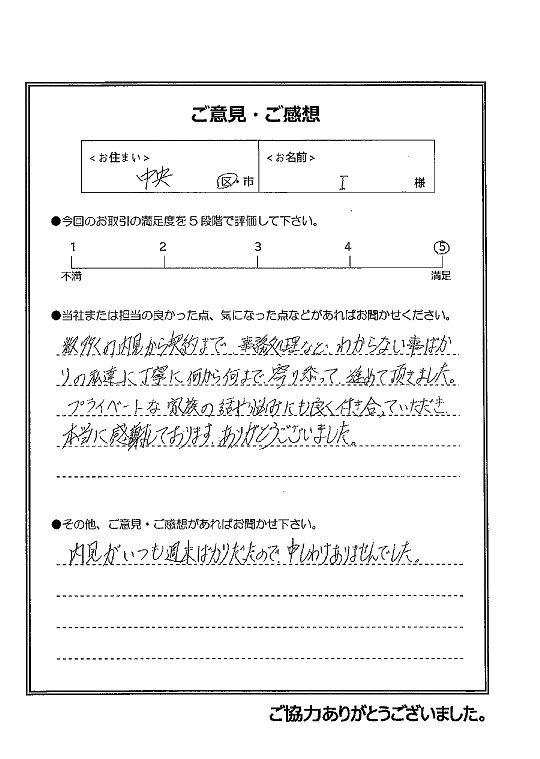 ご意見・ご感想
<お住まい>
<お名前>
中央 区・市
I 様
●今回のお取引の満足度を5段階で評価して下さい。
1 2 3 4 5
不満 満足
●当社または担当の良かった点、気になった点などがあればお聞かせください。
数多くの内見から契約まで、事務処理など、わからない事ばか
りの私達に丁寧に何から何まで、寄り添って進めて頂きました。
プライベートな家族の話や悩みにも良く付き合っていただき
本当に感謝しております。ありがとうございました。
●その他、ご意見・ご感想があればお聞かせ下さい。
内見がいつも週末ばかりだったので、申しわけありませんでした。
ご協力ありがとうございました。